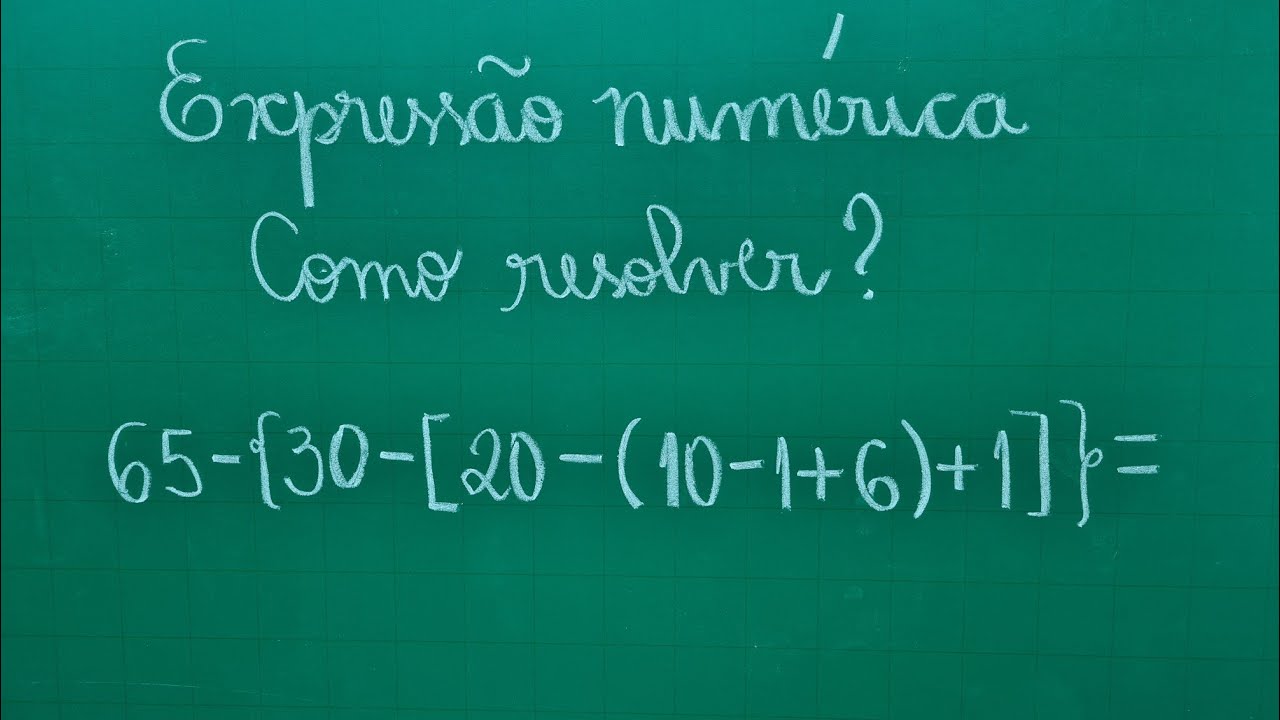 Expressão numérica
Como resolver?
65-{30-[20-(10-1+6)+1]}=